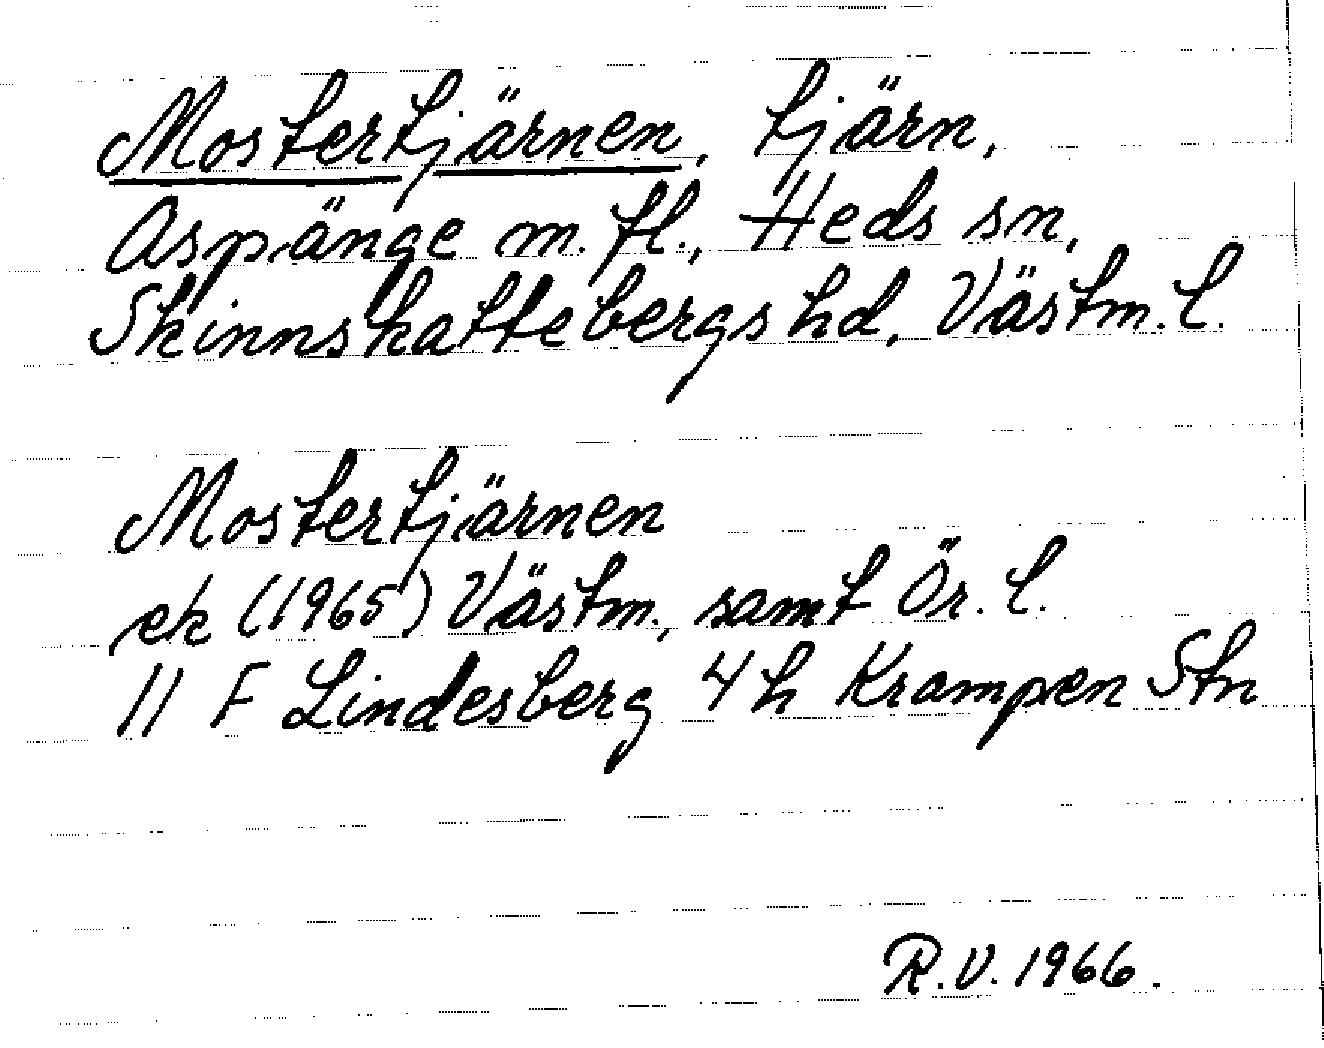 Mostertjärnen, tjärn,
Aspänge m. fl., Heds sn,
Skinnskattebergs hd, Västm. l.
Mostertjärnen
ek (1965) Västm., samt Ör. l.
11 F Lindesberg 4h Krampen Stn
R.V. 1966.